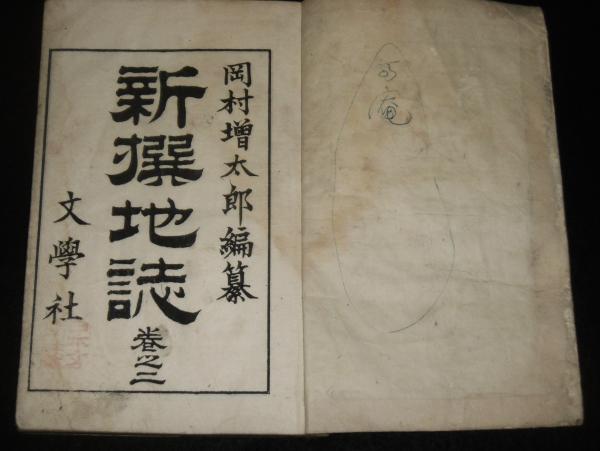 岡村增太郎編纂
新撰地誌 卷之三
文學社